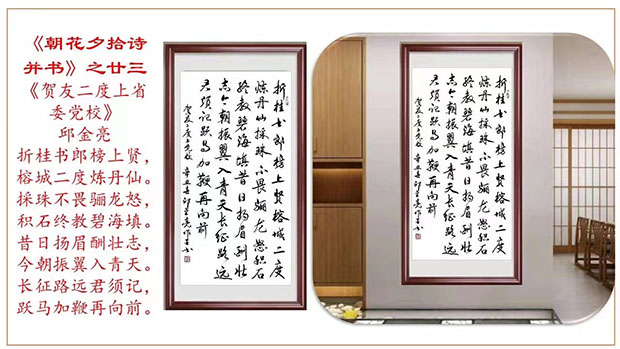 《朝花夕拾诗
并书》之廿三
《贺友二度上省
委党校》
邱金亮
折桂书郎榜上贤，
榕城二度炼丹仙。
採珠不畏骊龙怒，
积石终教碧海填。
昔日扬眉酬壮志，
今朝振翼入青天。
长征路远君须记，
跃马加鞭再向前。
折桂书郎榜上贤榕城二度
炼丹仙採珠不畏骊龙怒积石
终教碧海填昔日扬眉酬壮
志今朝振翼入青天长征路远
君须记跃马加鞭再向前
贺友二度上党校 辛丑 邱金亮作并书
折桂书郎榜上贤榕城二度
炼丹仙採珠不畏骊龙怒积石
终教碧海填昔日扬眉酬壮
志今朝振翼入青天长征路远
君须记跃马加鞭再向前
贺友二度上党校 辛丑 邱金亮作并书